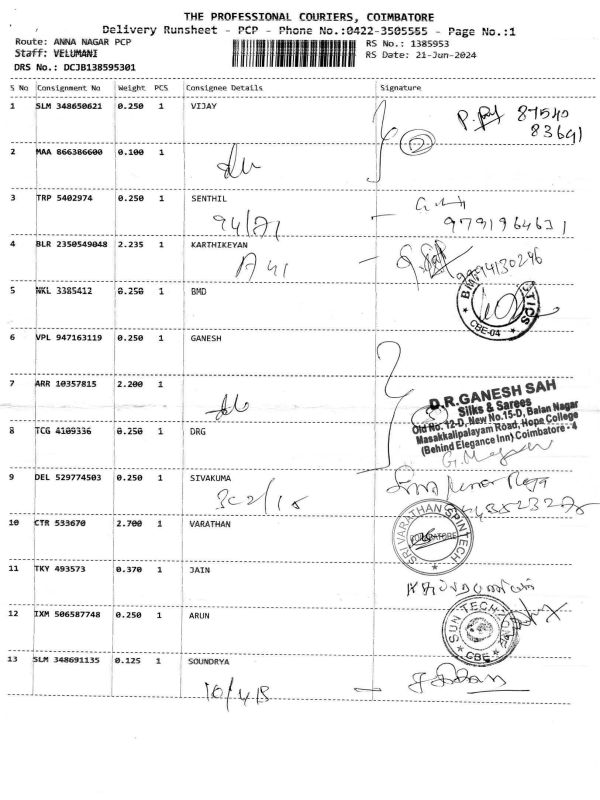 THE PROFESSIONAL COURIERS, COIMBATORE
Delivery Runsheet - PCP - Phone No.:0422-3505555 - Page No.:1
Route: ANNA NAGAR PCP RS No.: 1385953
Staff: VELUMANI RS Date: 21-Jun-2024
DRS No.: DCJB138595301
S No Consignment No Weight PCS Consignee Details Signature
1 SLM 348650621 0.250 1 VIJAY
87540
83641
2 MAA 866386600 0.100 1
3 TRP 5402974 0.250 1 SENTHIL
94/71
9791964631
4 BLR 2350549048 2.235 1 KARTHIKEYAN
9994130246
5 NKL 3385412 0.250 1 BMD
CBE-04
6 VPL 947163119 0.250 1 GANESH
7 ARR 10357815 2.200 1
D.R.GANESH SAH
Silks & Sarees
Old No. 12-D, New No.15-D, Balan Nagar
Masakkalipalayam Road, Hope College
(Behind Elegance Inn) Coimbatore - 4
8 TCG 4109336 0.250 1 DRG
9 DEL 529774503 0.250 1 SIVAKUMA
10 CTR 533670 2.700 1 VARATHAN
SRI VARATHAN SPINTECH
COIMBATORE
11 TKY 493573 0.370 1 JAIN
12 IXM 506587748 0.250 1 ARUN
SUN TECH
CBE
13 SLM 348691135 0.125 1 SOUNDRYA